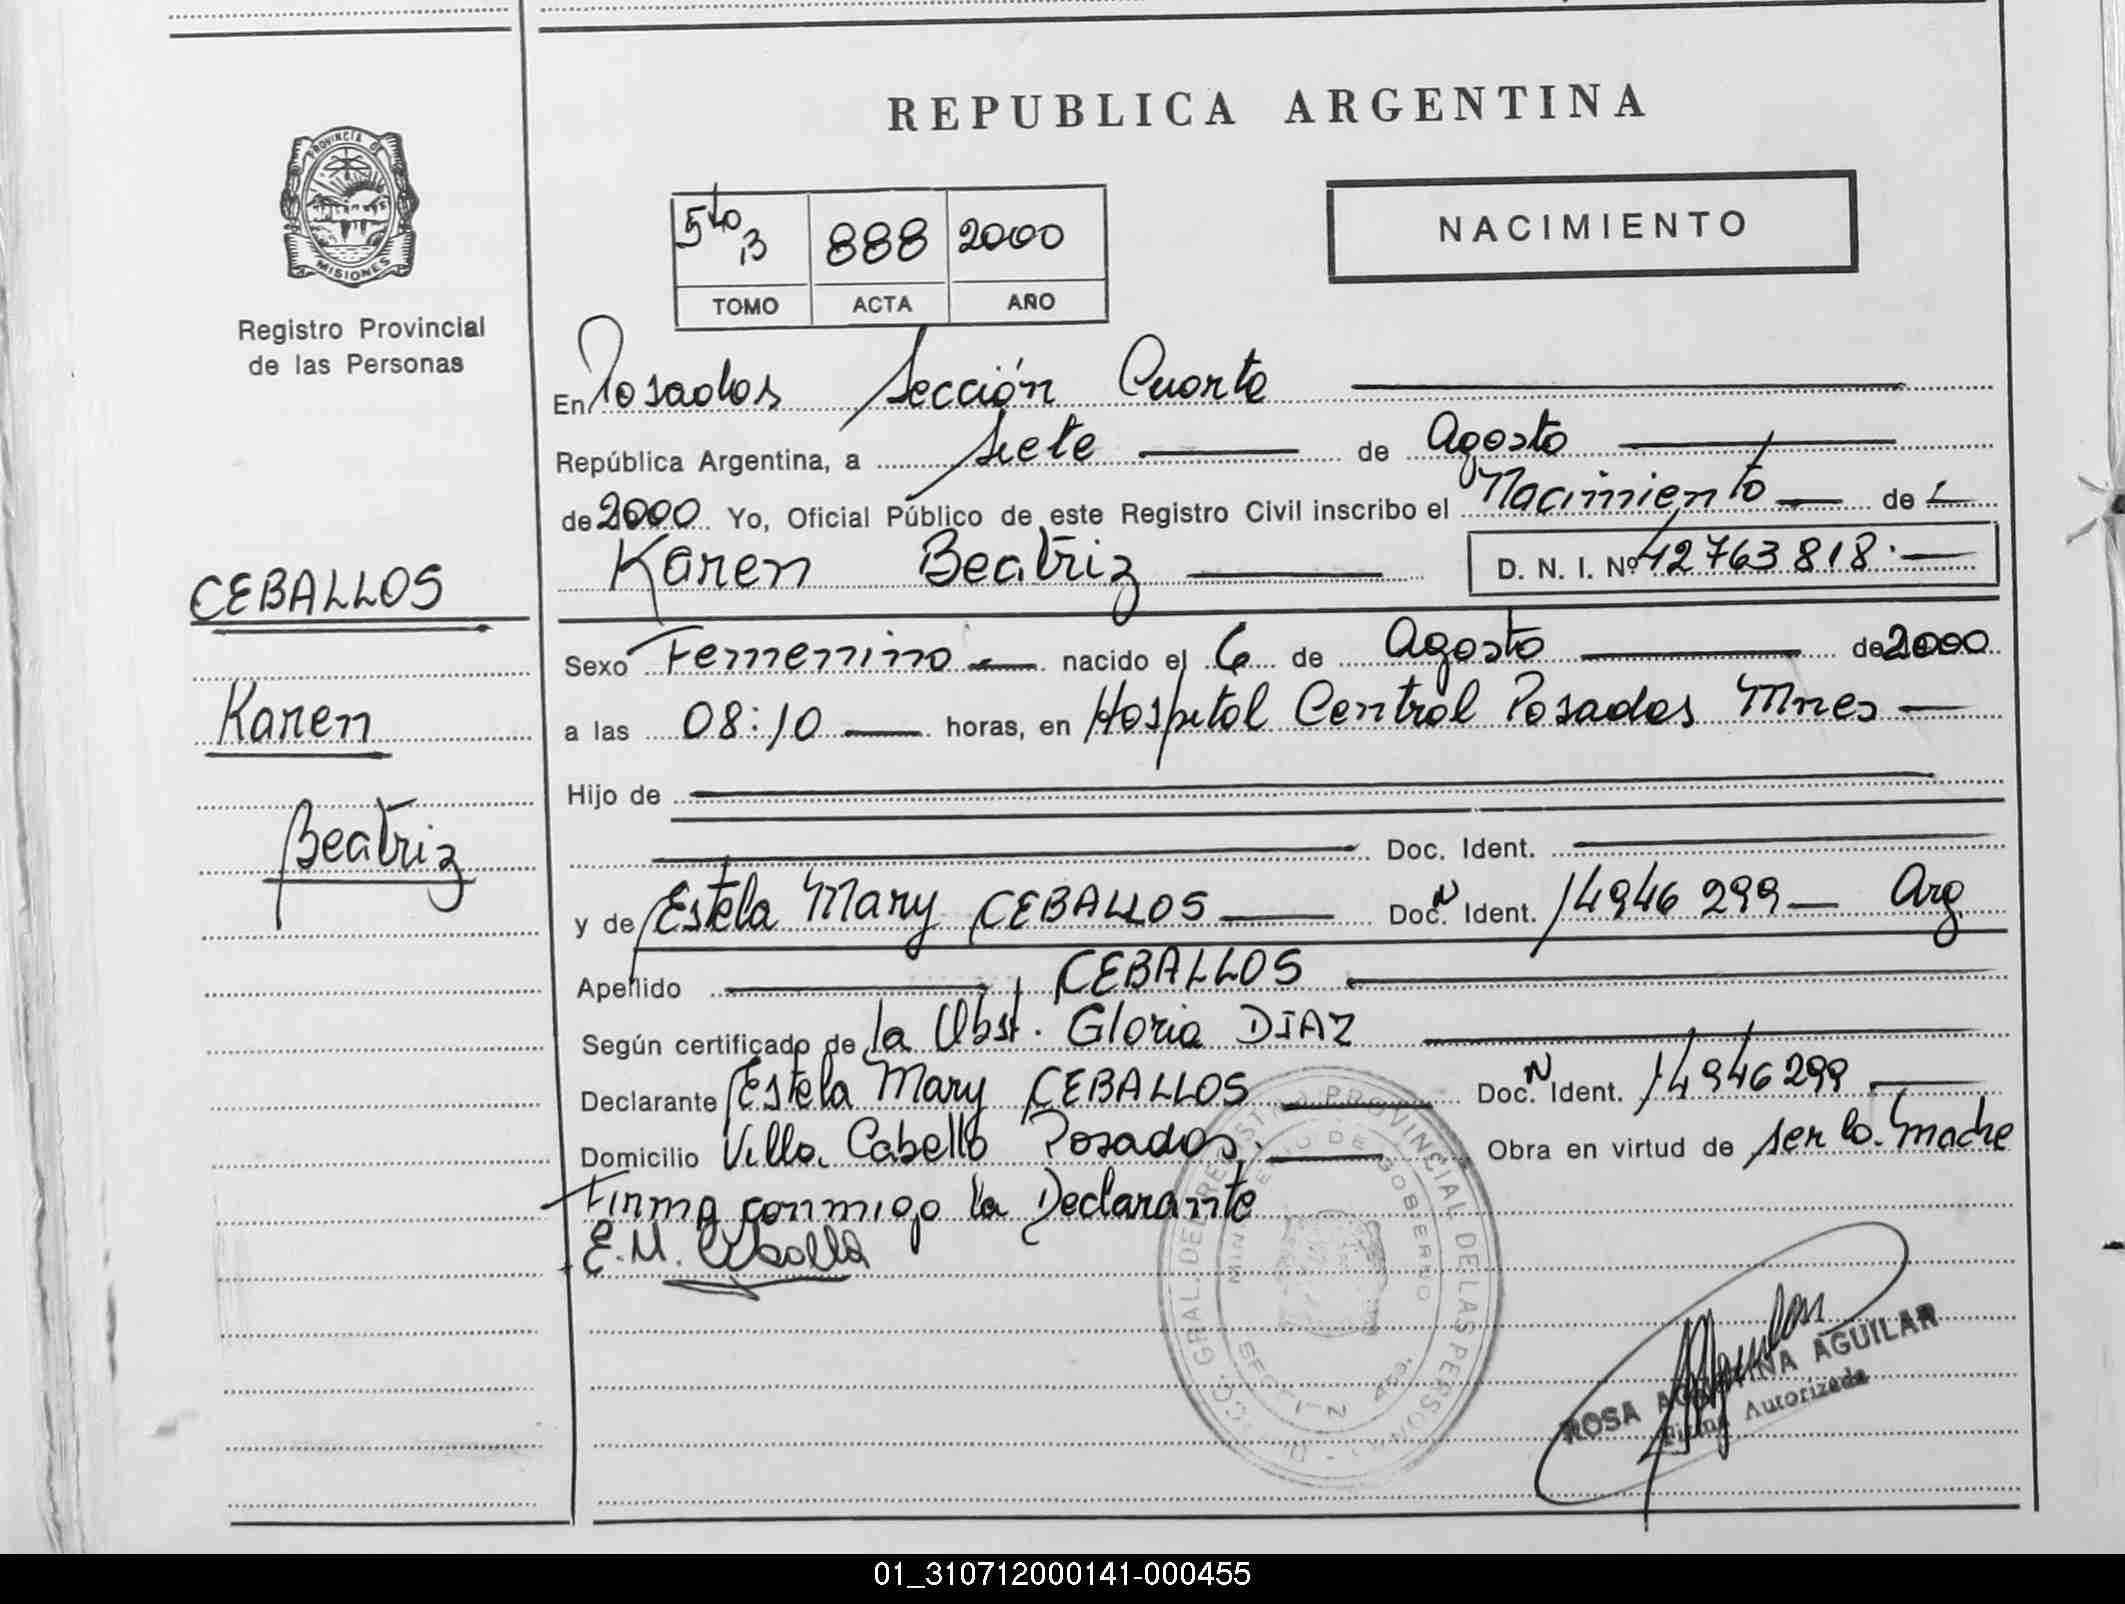 REPUBLICA ARGENTINA
PROVINCIA D
MISIONES
Registro Provincial
de las Personas
NACIMIENTO
5to B 888 2000
TOMO ACTA AÑO
En Posadas Sección Cuarta
República Argentina, a Siete de Agosto
de 2000 Yo, Oficial Público de este Registro Civil inscribo el Nacimiento de
Karen Beatriz D. N. I. Nº 42763818
CEBALLOS
Karen
Beatriz
Sexo Femenino nacido el 6 de Agosto de 2000
a las 08:10 horas, en Hospital Central Posadas Mnes
Hijo de
Doc. Ident.
y de Estela Mary CEBALLOS Doc. N Ident. 14946299 Arg.
Apellido CEBALLOS
Según certificado de la Obst. Gloria DIAZ
Declarante Estela Mary CEBALLOS Doc. N Ident. 14946299
Domicilio Villa Cabello Posadas. Obra en virtud de ser la madre
Firma conmigo la Declarante
E.M. Ceballo
GRAL. DEL REGISTRO PROVINCIAL DE LAS PERSONAS
MINISTERIO DE GOBIERNO
ROSA AGUSTINA AGUILAR
Firma Autorizada
01_310712000141-000455